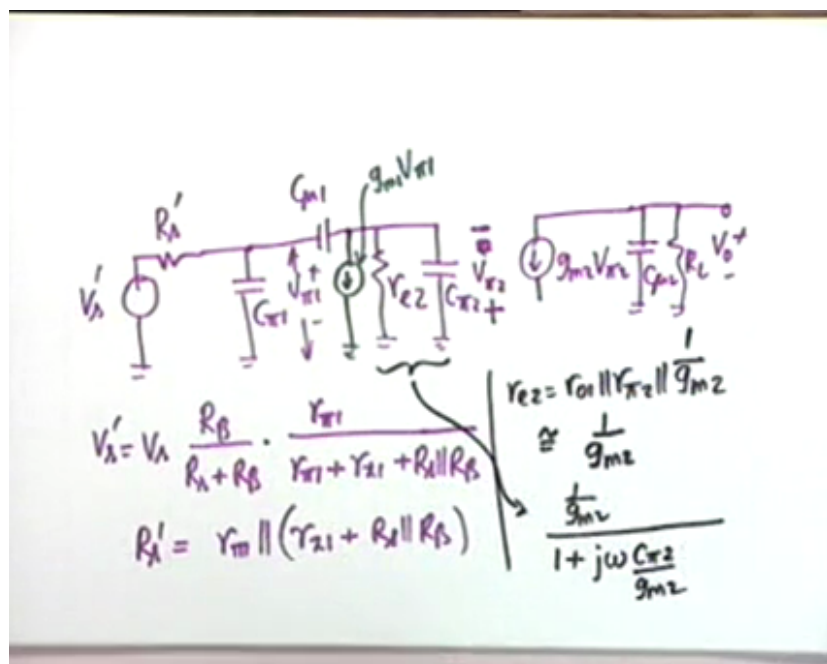 Cμ1
gm1Vπ1
Rs'
Vs'
Cπ1
+
Vπ1
-
re2
Cπ2
-
Vπ2
+
gm2Vπ2
Cμ2
RL
Vo
+
-
Vs' = Vs RB / (Rs + RB) · rπ1 / (rπ1 + rx1 + Rs||RB)
Rs' = rπ1 || (rx1 + Rs||RB)
re2 = ro1 || rπ2 || 1/gm2
≅ 1/gm2
1/gm2
1 + jω Cπ2/gm2